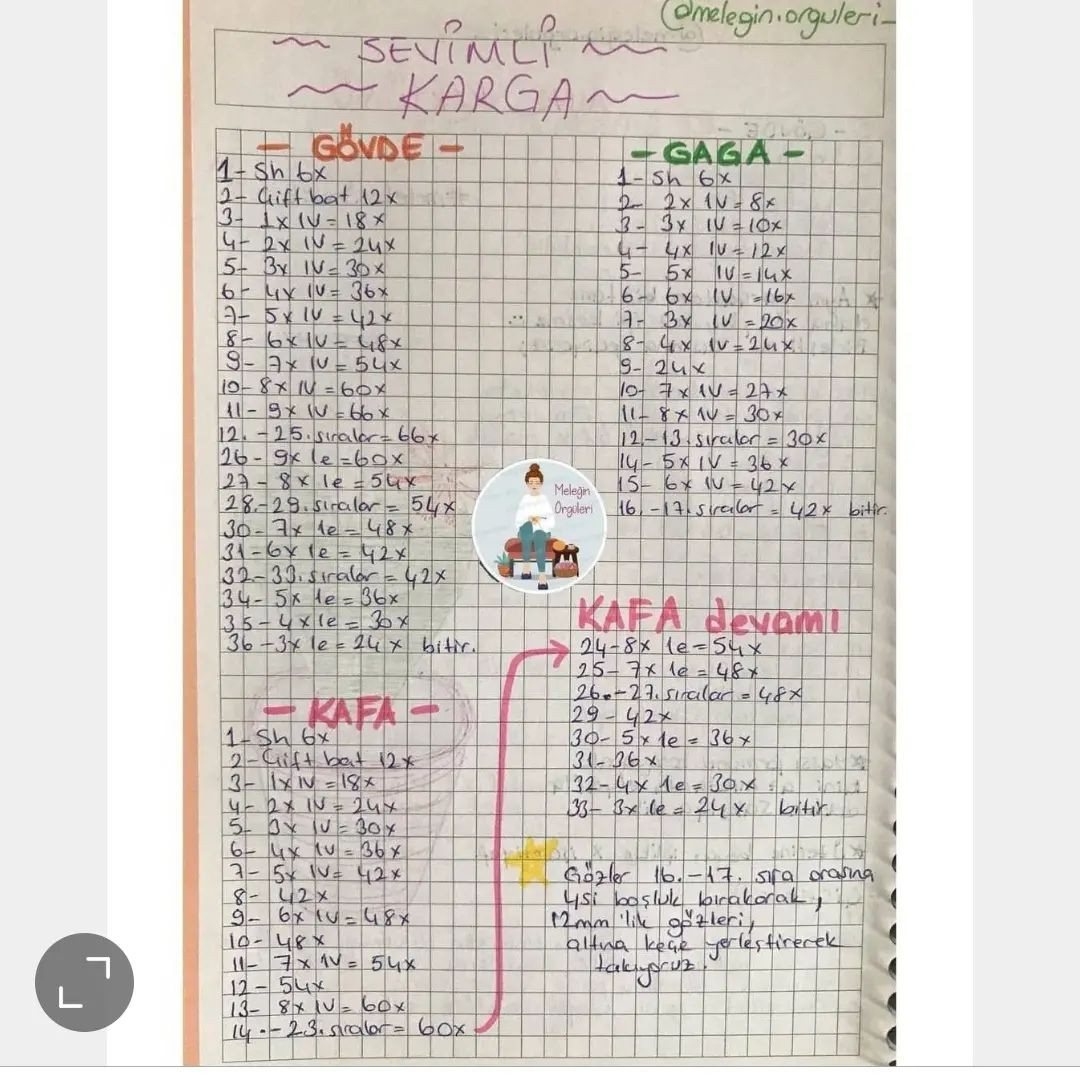 @melegin.orguleri_
SEVİMLİ
KARGA
- GÖVDE -
1- Sh 6x
2- Çift bat 12x
3- 1x 1V = 18x
4- 2x 1V = 24x
5- 3x 1V = 30x
6- 4x 1V = 36x
7- 5x 1V = 42x
8- 6x 1V = 48x
9- 7x 1V = 54x
10- 8x 1V = 60x
11- 9x 1V = 66x
12. -25. sıralar = 66x
26- 9x 1e = 60x
27- 8x 1e = 54x
28.-29. sıralar = 54x
30- 7x 1e = 48x
31- 6x 1e = 42x
32-33. sıralar = 42x
34- 5x 1e = 36x
35- 4x 1e = 30x
36- 3x 1e = 24x bitir.
- KAFA -
1- Sh 6x
2- Çift bat 12x
3- 1x 1V = 18x
4- 2x 1V = 24x
5- 3x 1V = 30x
6- 4x 1V = 36x
7- 5x 1V = 42x
8- 42x
9- 6x 1V = 48x
10- 48x
11- 7x 1V = 54x
12- 54x
13- 8x 1V = 60x
14.-23. sıralar = 60x
- GAGA -
1- Sh 6x
2- 2x 1V = 8x
3- 3x 1V = 10x
4- 4x 1V = 12x
5- 5x 1V = 14x
6- 6x 1V = 16x
7- 3x 1V = 20x
8- 4x 1V = 24x
9- 24x
10- 7x 1V = 27x
11- 8x 1V = 30x
12-13. sıralar = 30x
14- 5x 1V = 36x
15- 6x 1V = 42x
16.-17. sıralar = 42x bitir.
Meleğin
Örgüleri
KAFA devamı
24- 8x 1e = 54x
25- 7x 1e = 48x
26.-27. sıralar = 48x
29- 42x
30- 5x 1e = 36x
31- 36x
32- 4x 1e = 30x
33- 3x 1e = 24x bitir.
Gözler 16.-17. sıra arasına
4si boşluk bırakarak,
12mm'lik gözleri,
altına keçe yerleştirerek
takıyoruz.